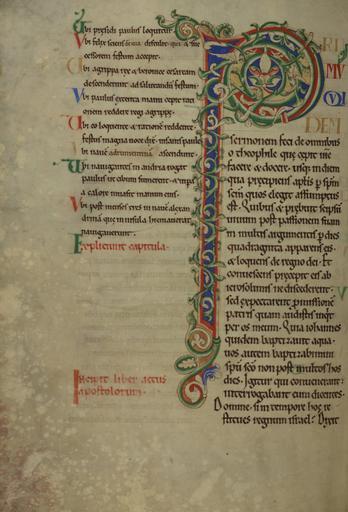 Ubi presidi paulus loquitur
Ubi felix
cessorem festum accepit.
Ubi agrippa rex & beronice cesaream
descenderunt ad salutandu festum
Ubi paulus
onem reddere regi agrippe.
Ubi eo loquente & rationē reddente
festus magna uoce dix insanis paule
Ubi nauē adrumetinā ascendunt.
Ubi nauigantes
paulus ut cibum sumerent
a calore inuasit manum eius
Ubi post menses tres in nauē alexan
drina que in insula hiemauerat
nauigauerunt.
Expliciunt capitula.
Incipit liber actus
apostolorum.
PRI
MV
QVI
DEM
sermonem feci de omnibus
o theophile que cepit ihc
facere & docere. usq; in diem
qua precipiens aptis p spm
scm quos elegit assumptus
est. Quibus & prebuit seipsū
uiuum post passionem suam
in multis argumentis p dies
quadraginta apparens eis.
& loquens de regno dei. Et
conuescens precepit eis ab
ierosolimis ne discederent.
sed expectarent pmissionē
patris quam audistis inqt
per os meum. Quia iohannes
quidem baptizauit aqua.
uos autem baptizabimini
spu sco non post multos hos
dies. Igitur qui conuenerant:
interrogabant eum dicentes.
Domine. si in tempore hoc re
stitues regnum israel. Dixit